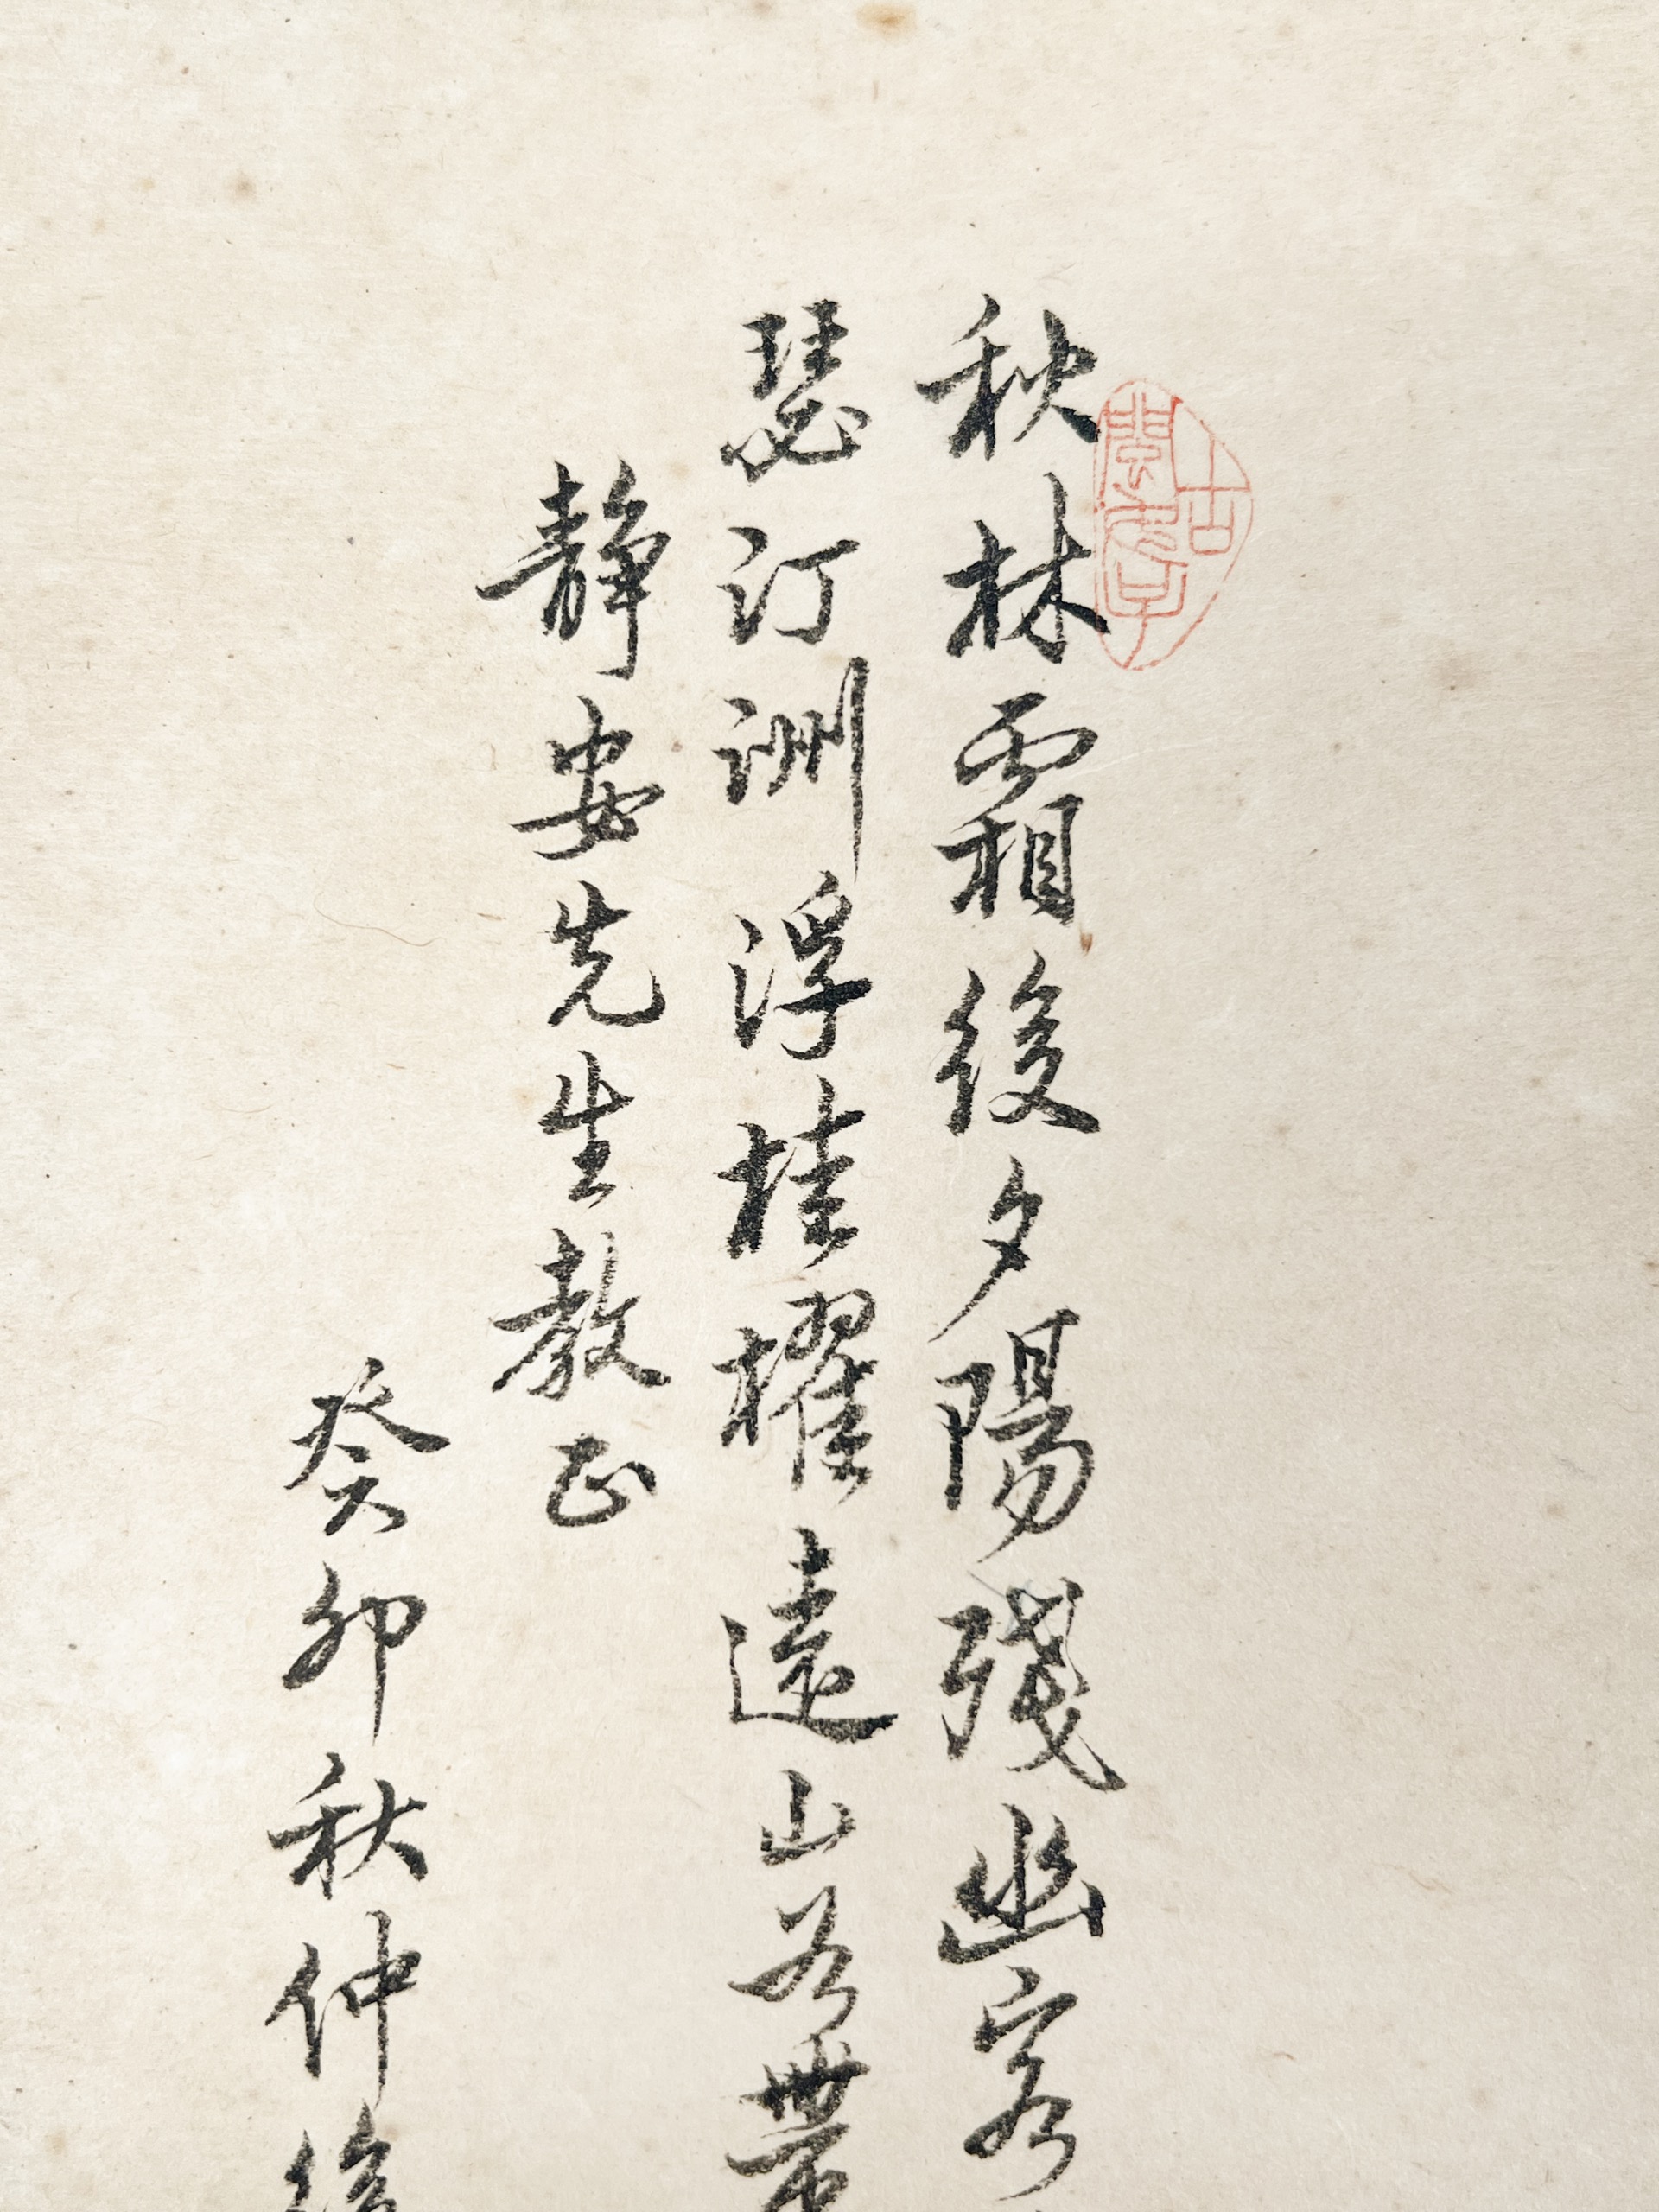 秋林霜後夕陽殘幽客
瑟汀洲浮桂櫂遠山若帶
靜安先生教正
癸卯秋仲後